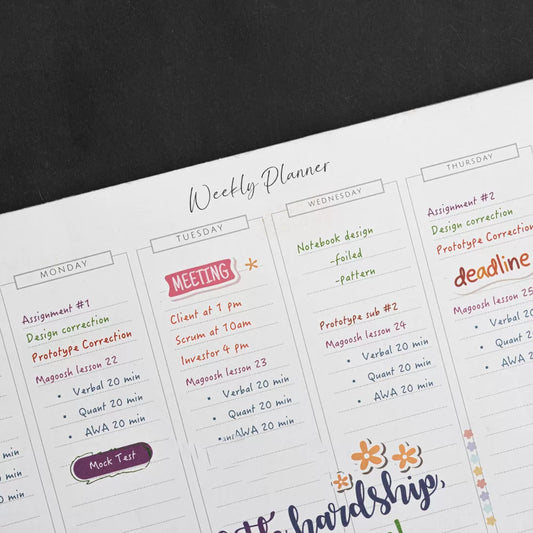 Weekly Planner
MONDAY
Assignment #1
Design correction
Prototype Correction
Magoosh lesson 22
• Verbal 20 min
• Quant 20 min
• AWA 20 min
Mock Test
TUESDAY
MEETING
Client at 1 pm
Scrum at 10am
Investor 4 pm
Magoosh lesson 23
• Verbal 20 min
• Quant 20 min
• AWA 20 min
WEDNESDAY
Notebook design
-foiled
-pattern
Prototype sub #2
Magoosh lesson 24
• Verbal 20 min
• Quant 20 min
• AWA 20 min
hardship,
THURSDAY
Assignment #2
Design correction
Prototype Correction
deadline
Magoosh lesson 25
• Verbal 20 min
• Quant 20 min
• AWA 20 min
min
min
min